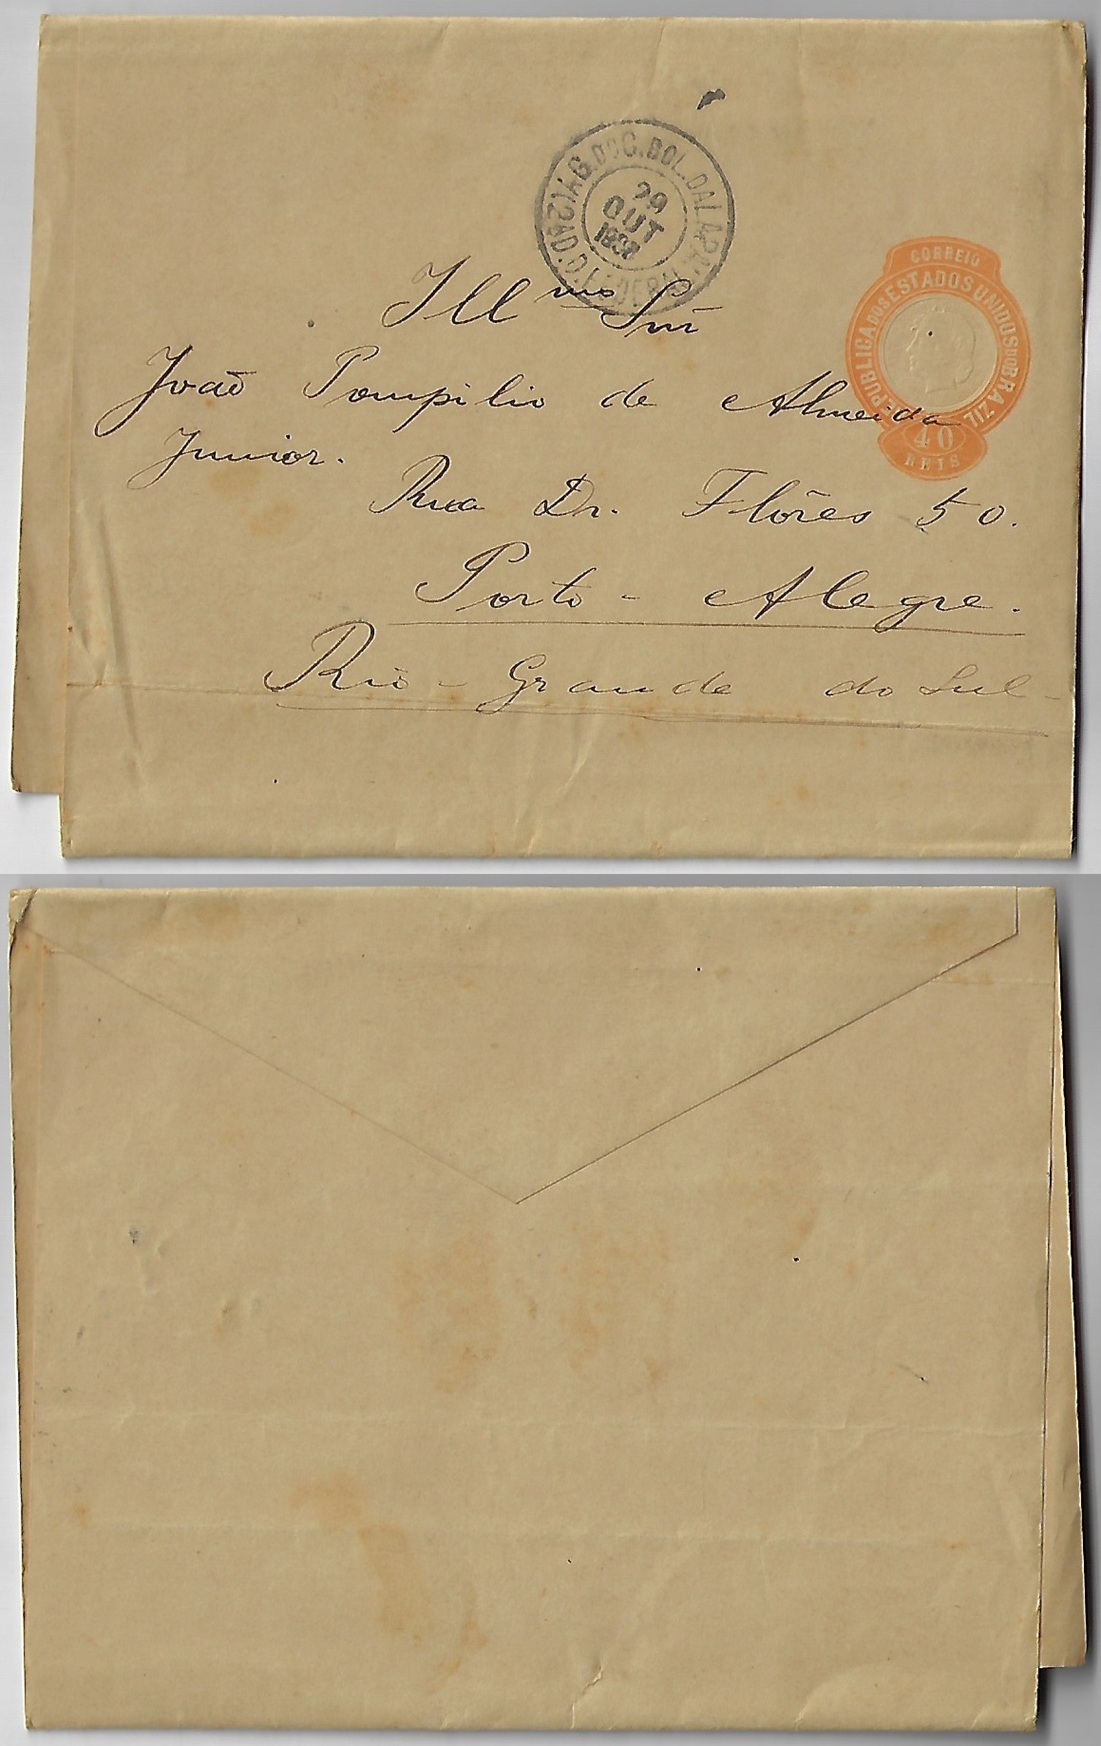 29
OUT
1898
CORREIO
REPUBLICA DOS ESTADOS UNIDOS DO BRAZIL
40
REIS
Illmo Snr
João Pompilio de Almeida
Junior.
Rua Dr. Flôres 50.
Porto - Alegre.
Rio - Grande do Sul -